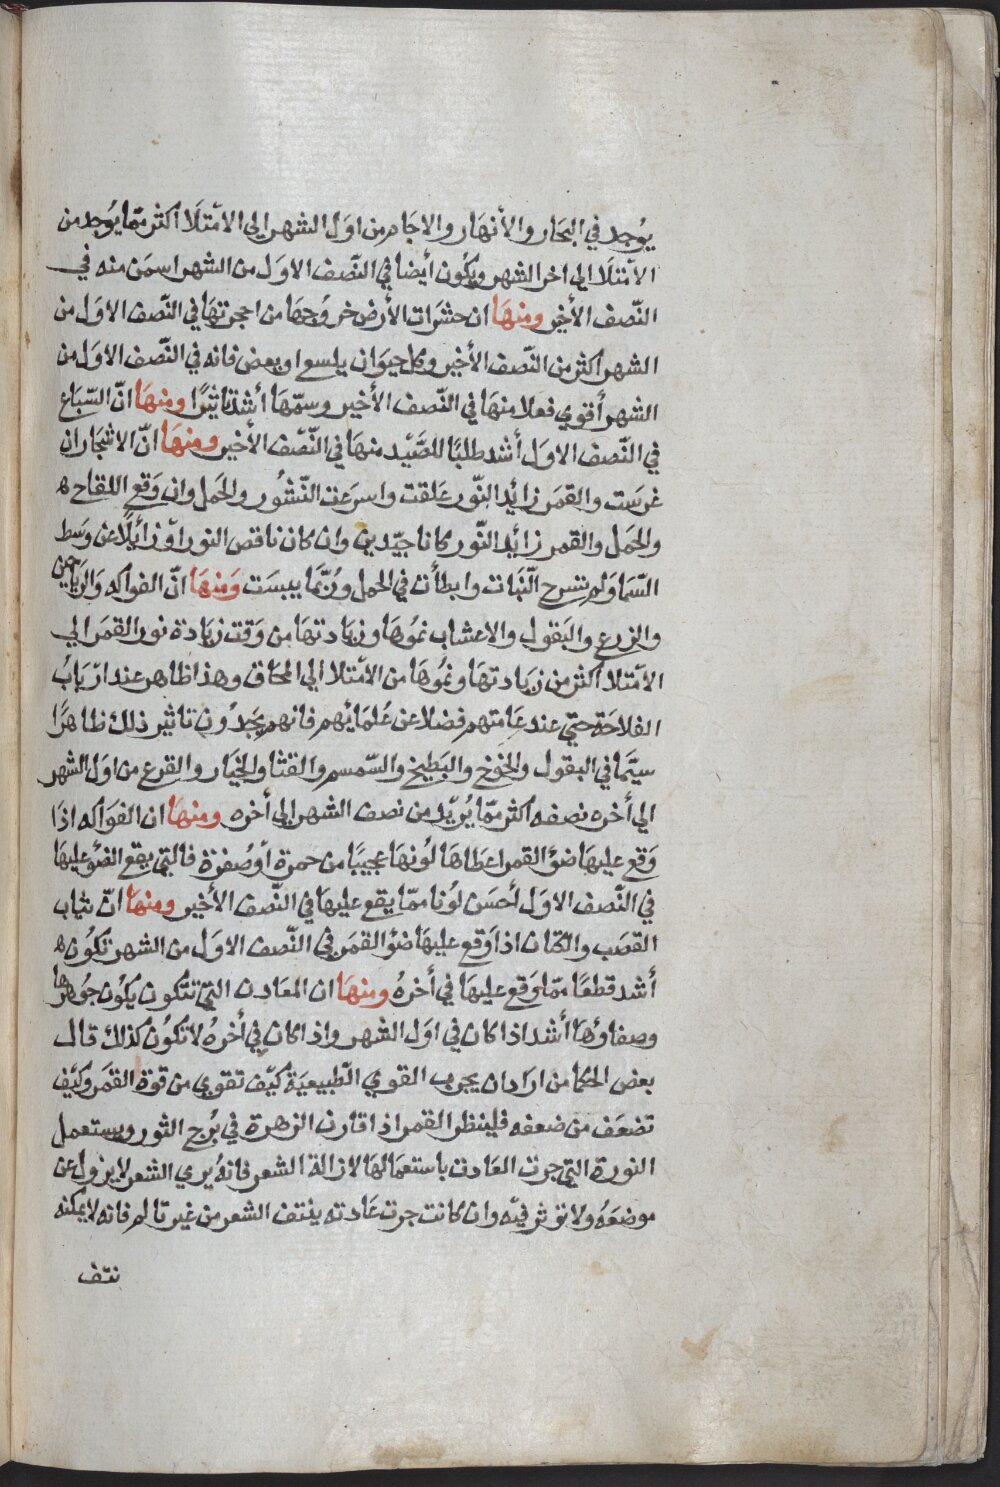 يُوجد في البحَار والأنهَار والاجَام من اوَل الشهر الي الامْتلَا اكثر ممّا يوُجد من
الامْتلَا الي اخر الشهر ويكُون أيْضا في النّصف الاوَل من الشهر اسمَن منه في
النّصف الأخير ومنهَا ان حشرَات الأرض خروُجهَا من اججرتهَا في النّصف الاوَل من
الشهر اكثر من النّصف الأخير وكل حيوَان يلسع او يعض فانه في النّصف الاوَل من
الشهر أقوي فعلا منهَا في النّصف الأخير وسمّهَا أشد تاثيرًا ومنهَا انّ السّباع
في النّصف الاوَل أشد طلبًا للصَّيْد منهَا في النّصْف الأخير ومنهَا انّ الاشجَار ان
غرسَت والقمَر زائد النّور عَلقت واسرعَت النّشُور والحَمل وان وَقع اللقاح
والحَمل والقمر زائد النّور كانا جيّدين وان كان ناقص النور اوْ زائلًا عن وسَط
السّما وَلم تسرح النّبات وابطأت في الحمل ورُبّما يبسَت وَمنهَا انّ الفواكه وَالريَاحين
والزرع والبَقول والاعشاب نموُهَا وزيَادتهَا من وَقت زيَادة نور القمَر الي
الامْتلا اكثر من زيَادتهَا ونموُهَا من الامْتلا الي المحَاق وهذا ظاهر عند ارْبَابُ
الفلاحَة حتيّ عند عَامتهم فضلا عن عُلمَائهم فانهم يجدُون تاثير ذلك ظاهرًا
سيّمَا في البقول والخوخ والبَطيخ والسّمسم والقثا والخيَار والقرع من اوَل الشهر
الي أخره نصفه اكثر ممّا يُريْد من نصف الشهر الي أخره ومنهَا ان الفوَاكه اذَا
وَقع عليهَا ضوْ القمر اعطَاهَا لوُنهَا عجيبًا من حمرة أوْ صُفرة فالتي يقع الضوْ عليهَا
في النّصف الاوَل أحسَن لوُنا ممّا يقع عليهَا في النّصف الأخير ومنهَا انّ ثيَاب
القصَب والكتان اذا وَقع عليهَا ضوْ القمَر في النّصف الاوَل من الشهر تكوُن
أشد قطعًا ممّا وَقع عليهَا في أخرهُ ومنهَا ان المعَادن التي تتكُون يكوُن جوُهرهَا
وصفاوُهَا أشد اذا كان في اوَل الشهر واذا كان في أخرهُ لا تكوُن كذلك قال
بعض الحكما من ارَاد ان يجرب القوي الطّبيعيَة كيْف تقوي من قوة القمَر وكيْف
تضعَف من ضعفه فلينظر القمر اذا قارن الزهرة في بُرج الثور ويستعمل
النورة التي جرت العَادت باستعمَالهَا لازالة الشعر فانهُ يري الشعر لا يزول عن
موضعَهُ ولا توثر فيْه وان كانت جرت عَادته ينتف الشعر من غير تالم فانه لا يمكنه
نتف